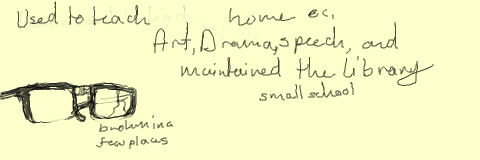 Used to teach home ec,
Art, Drama, speech, and
maintained the Library
small school
broken in a
few places